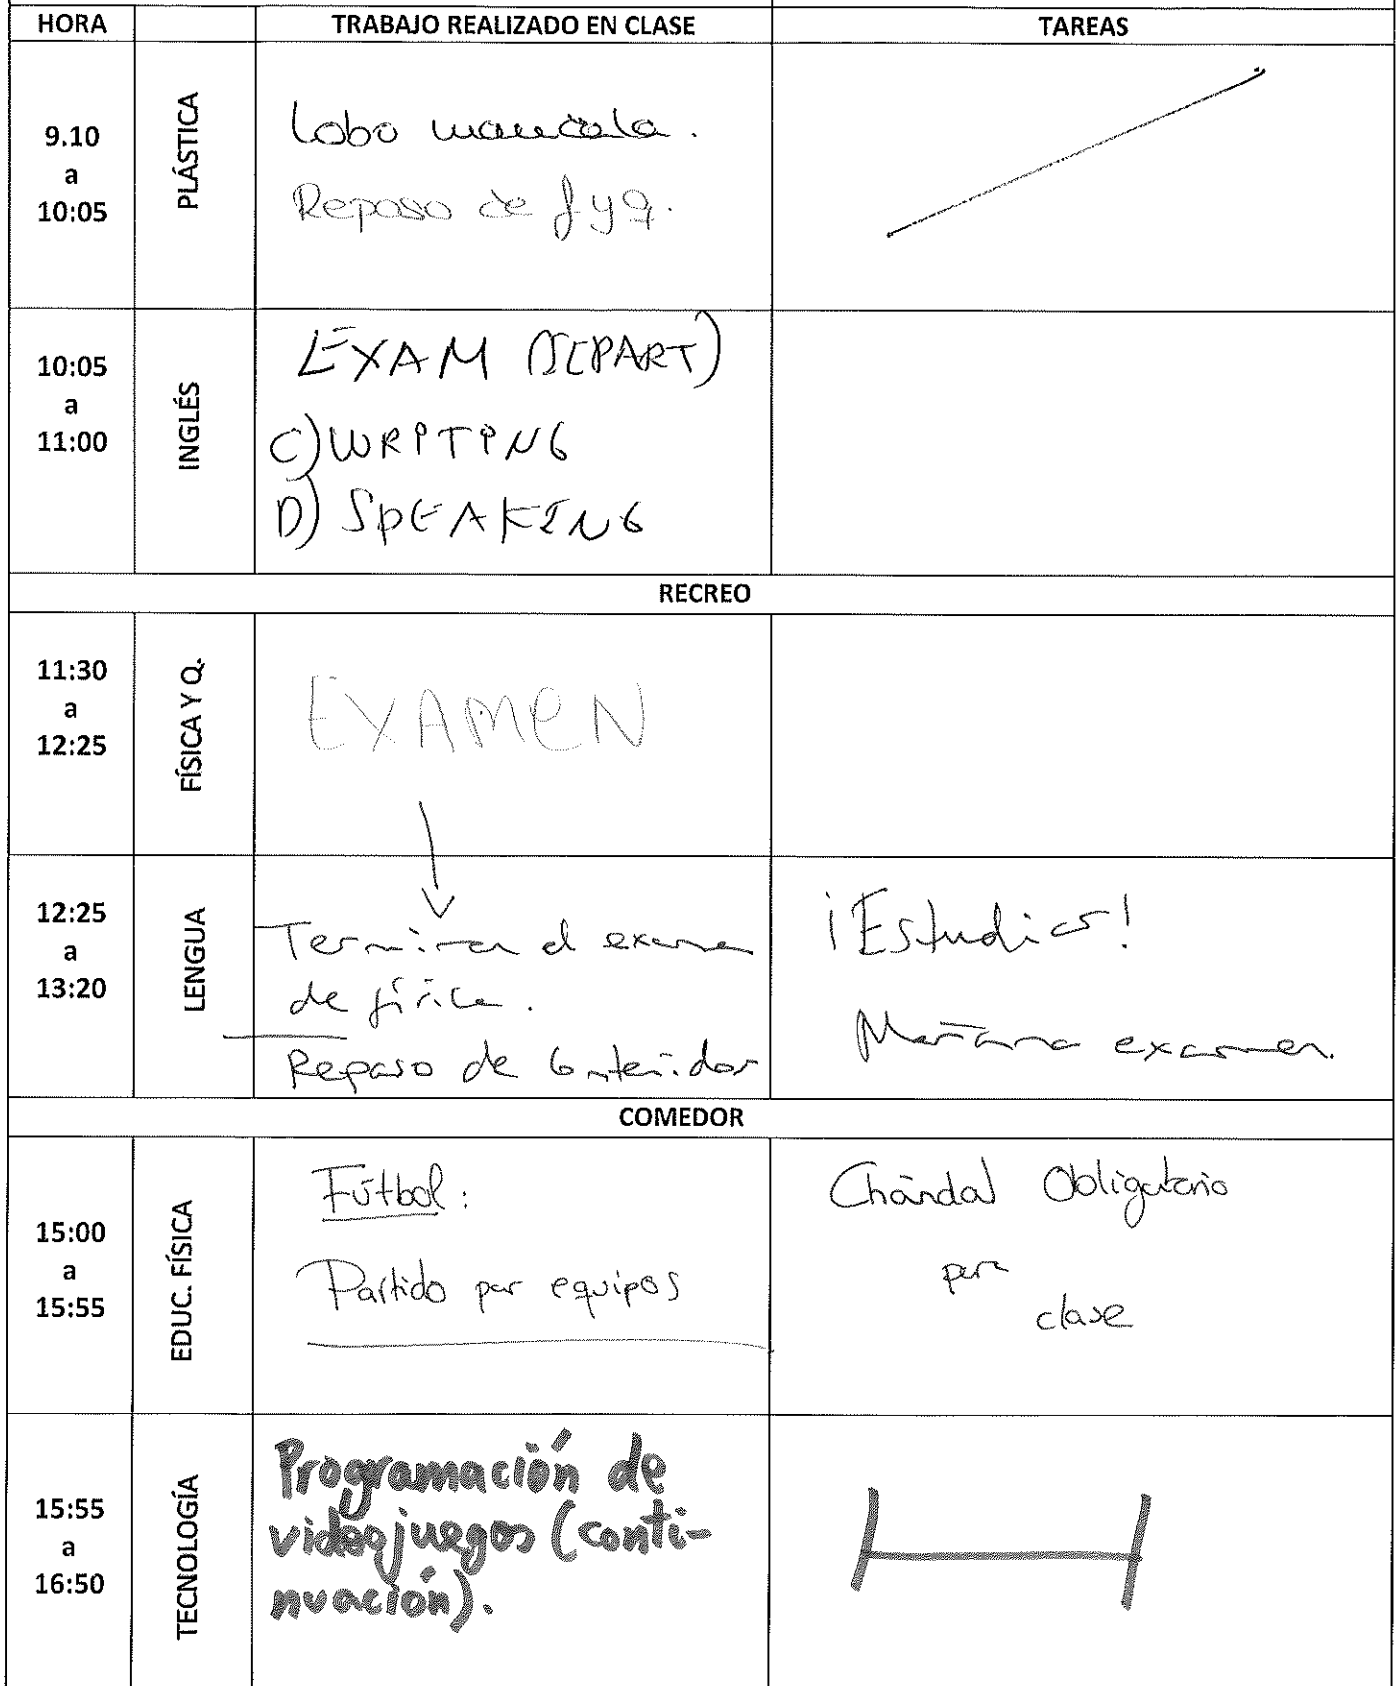 HORA TRABAJO REALIZADO EN CLASE TAREAS
9.10
a
10:05
PLÁSTICA
Lobo mandala.
Reposo de f y q.
10:05
a
11:00
INGLÉS
EXAM (II PART)
C) WRITING
D) SPEAKING
RECREO
11:30
a
12:25
FÍSICA Y Q.
EXAMEN
12:25
a
13:20
LENGUA
Terminar el examen
de física.
Repaso de contenidos
¡Estudiar!
Mañana examen.
COMEDOR
15:00
a
15:55
EDUC. FÍSICA
Fútbol:
Partido por equipos
Chándal Obligatorio
para
clase
15:55
a
16:50
TECNOLOGÍA
Programación de
videojuegos (conti-
nuación).